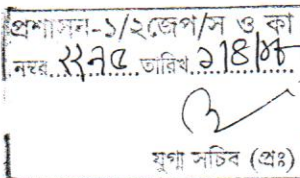 প্রশাসন-১/২জেপ/স ও কা
নম্বর ২২৭৫ তারিখ ১/৪/০৮
যুগ্ম সচিব (প্রঃ)